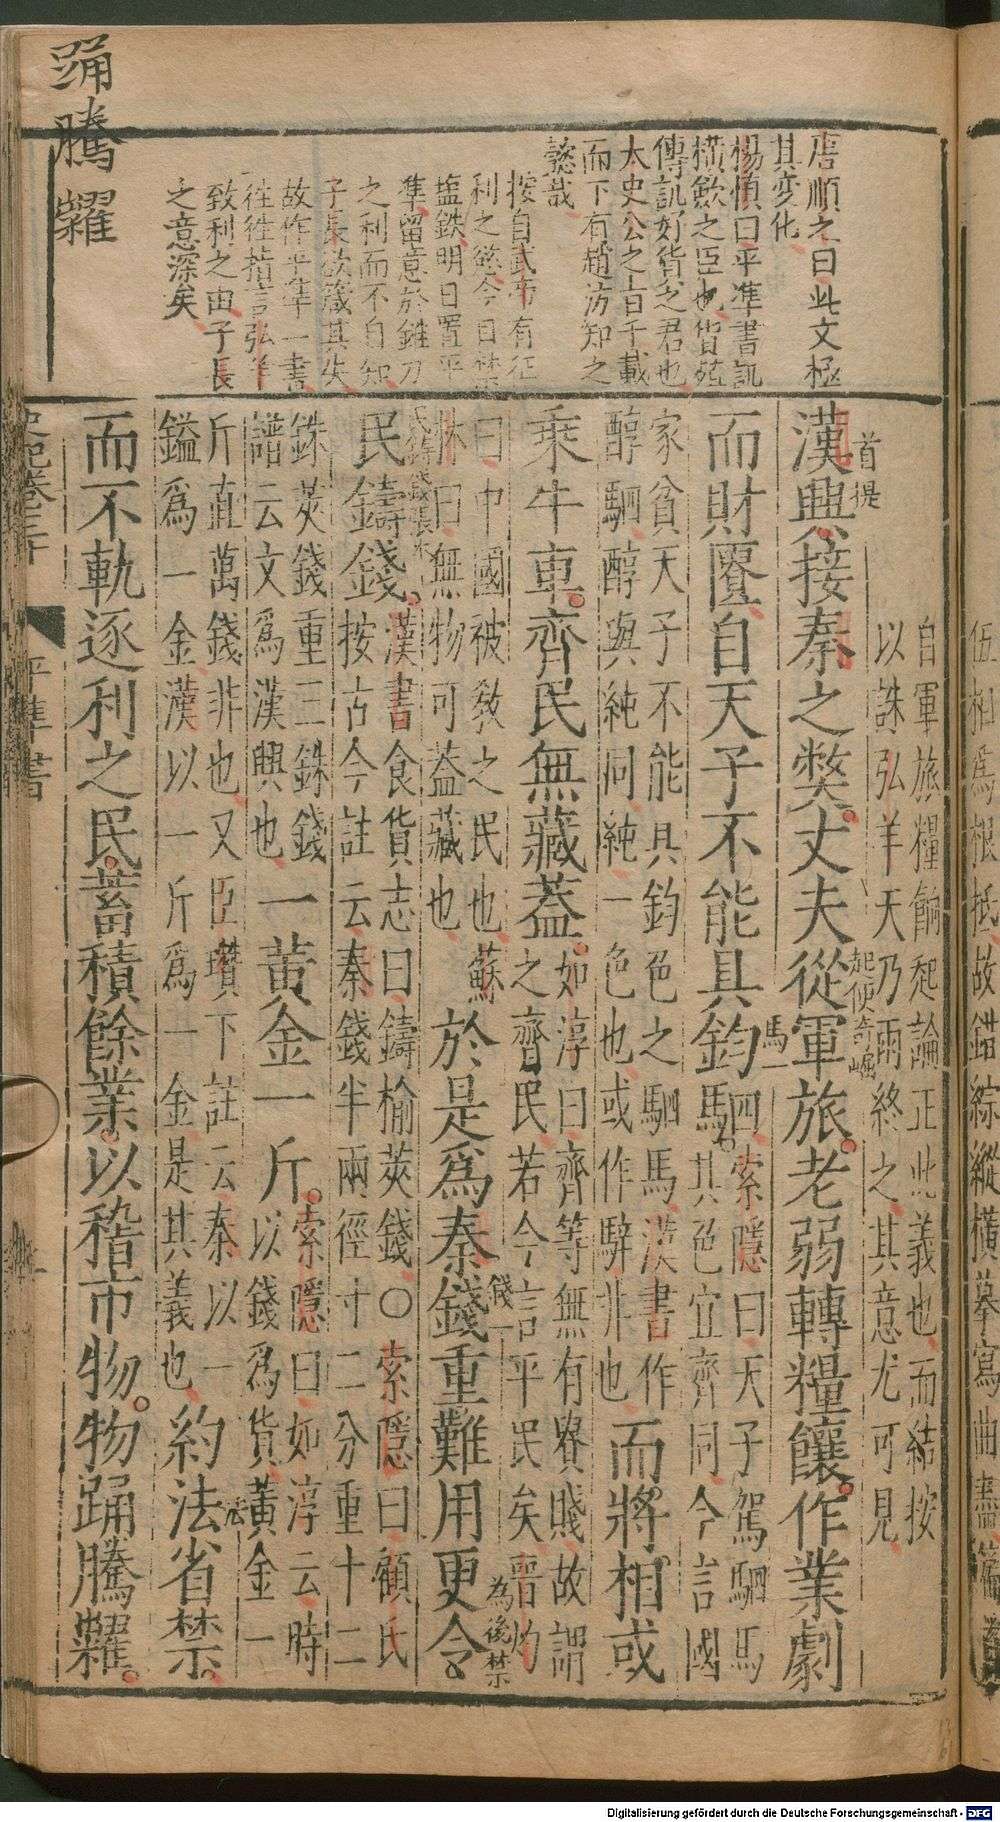 踊騰糶
唐順之曰此文極
其変化
楊慎曰平凖書訊
橫歛之臣也貨殖
傳訊好貨之君也
太史公之旨千載
而下有趙汸知之
懿哉
按自武帝有征
利之慾今日禁
塩鉄明日置平
凖留意於錐刀
之利而不自知
子長欲箴其失
故作平凖一書
往徃指言弘羊
致利之由子長
之意深矣
自軍旅糧餉起論正此義也而結按
以誅弘羊天乃雨終之其意尤可見
首提
起便奇崛
漢興接秦之獘丈夫從軍旅老弱轉糧饟作業劇
而財匱自天子不能具鈞駟
索隱曰天子駕駟馬
其色宜齊同今言國
家貧天子不能具鈞色之駟馬漢書作
醇駟醇與純同純一色也或作騂非也
而將相或
乘牛車齊民無藏蓋
如淳曰齊等無有貴賤故謂
之齊民若今言平民矣晉灼
曰中國被敎之民也蘇
林曰無物可蓋藏也
於是爲秦錢重難用更令
為後禁
民鑄錢
漢書食貨志曰鑄榆莢錢〇索隱曰顧氏
按古今註云秦錢半兩徑寸二分重十二
銖莢錢重三銖錢
譜云文爲漢興也
一黃金一斤
索隱曰如淳云時
以錢爲貨黃金一
斤直萬錢非也又臣瓚下註云秦以一
鎰爲一金漢以一斤爲一金是其義也
約法省禁
而不軌逐利之民蓄積餘業以稽市物物踊騰糶
史記卷三十
平準書
伍相爲根抵故錯綜縱橫摹寫曲盡
Digitalisierung gefördert durch die Deutsche Forschungsgemeinschaft - DFG